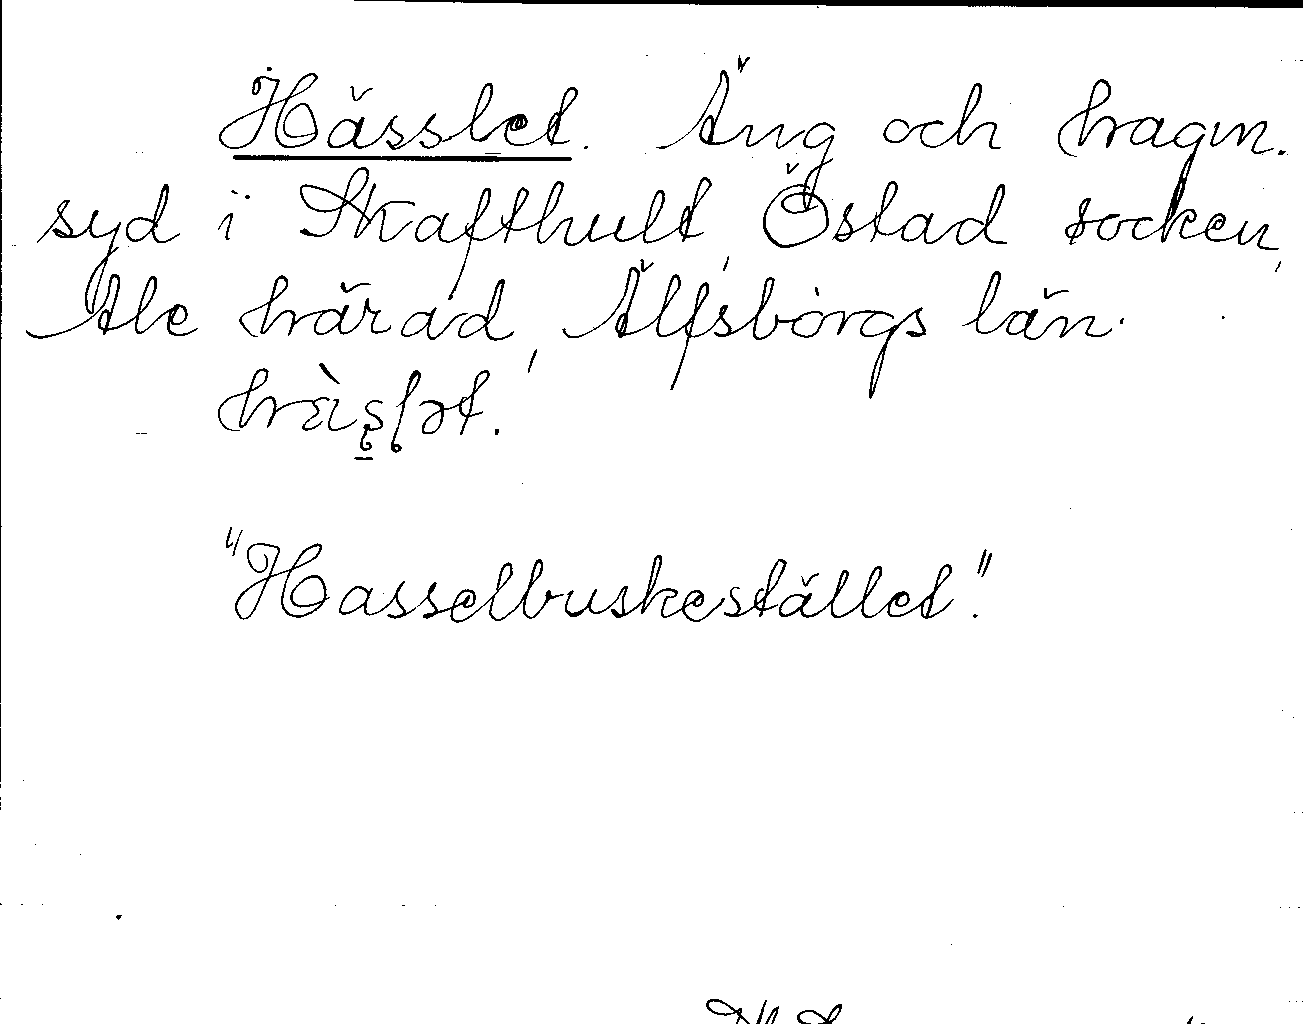 Hässlet. Äng och hagm.
syd i Skafthult, Östad socken,
Ale härad, Älfsborgs län.
"Hasselbuskestället".